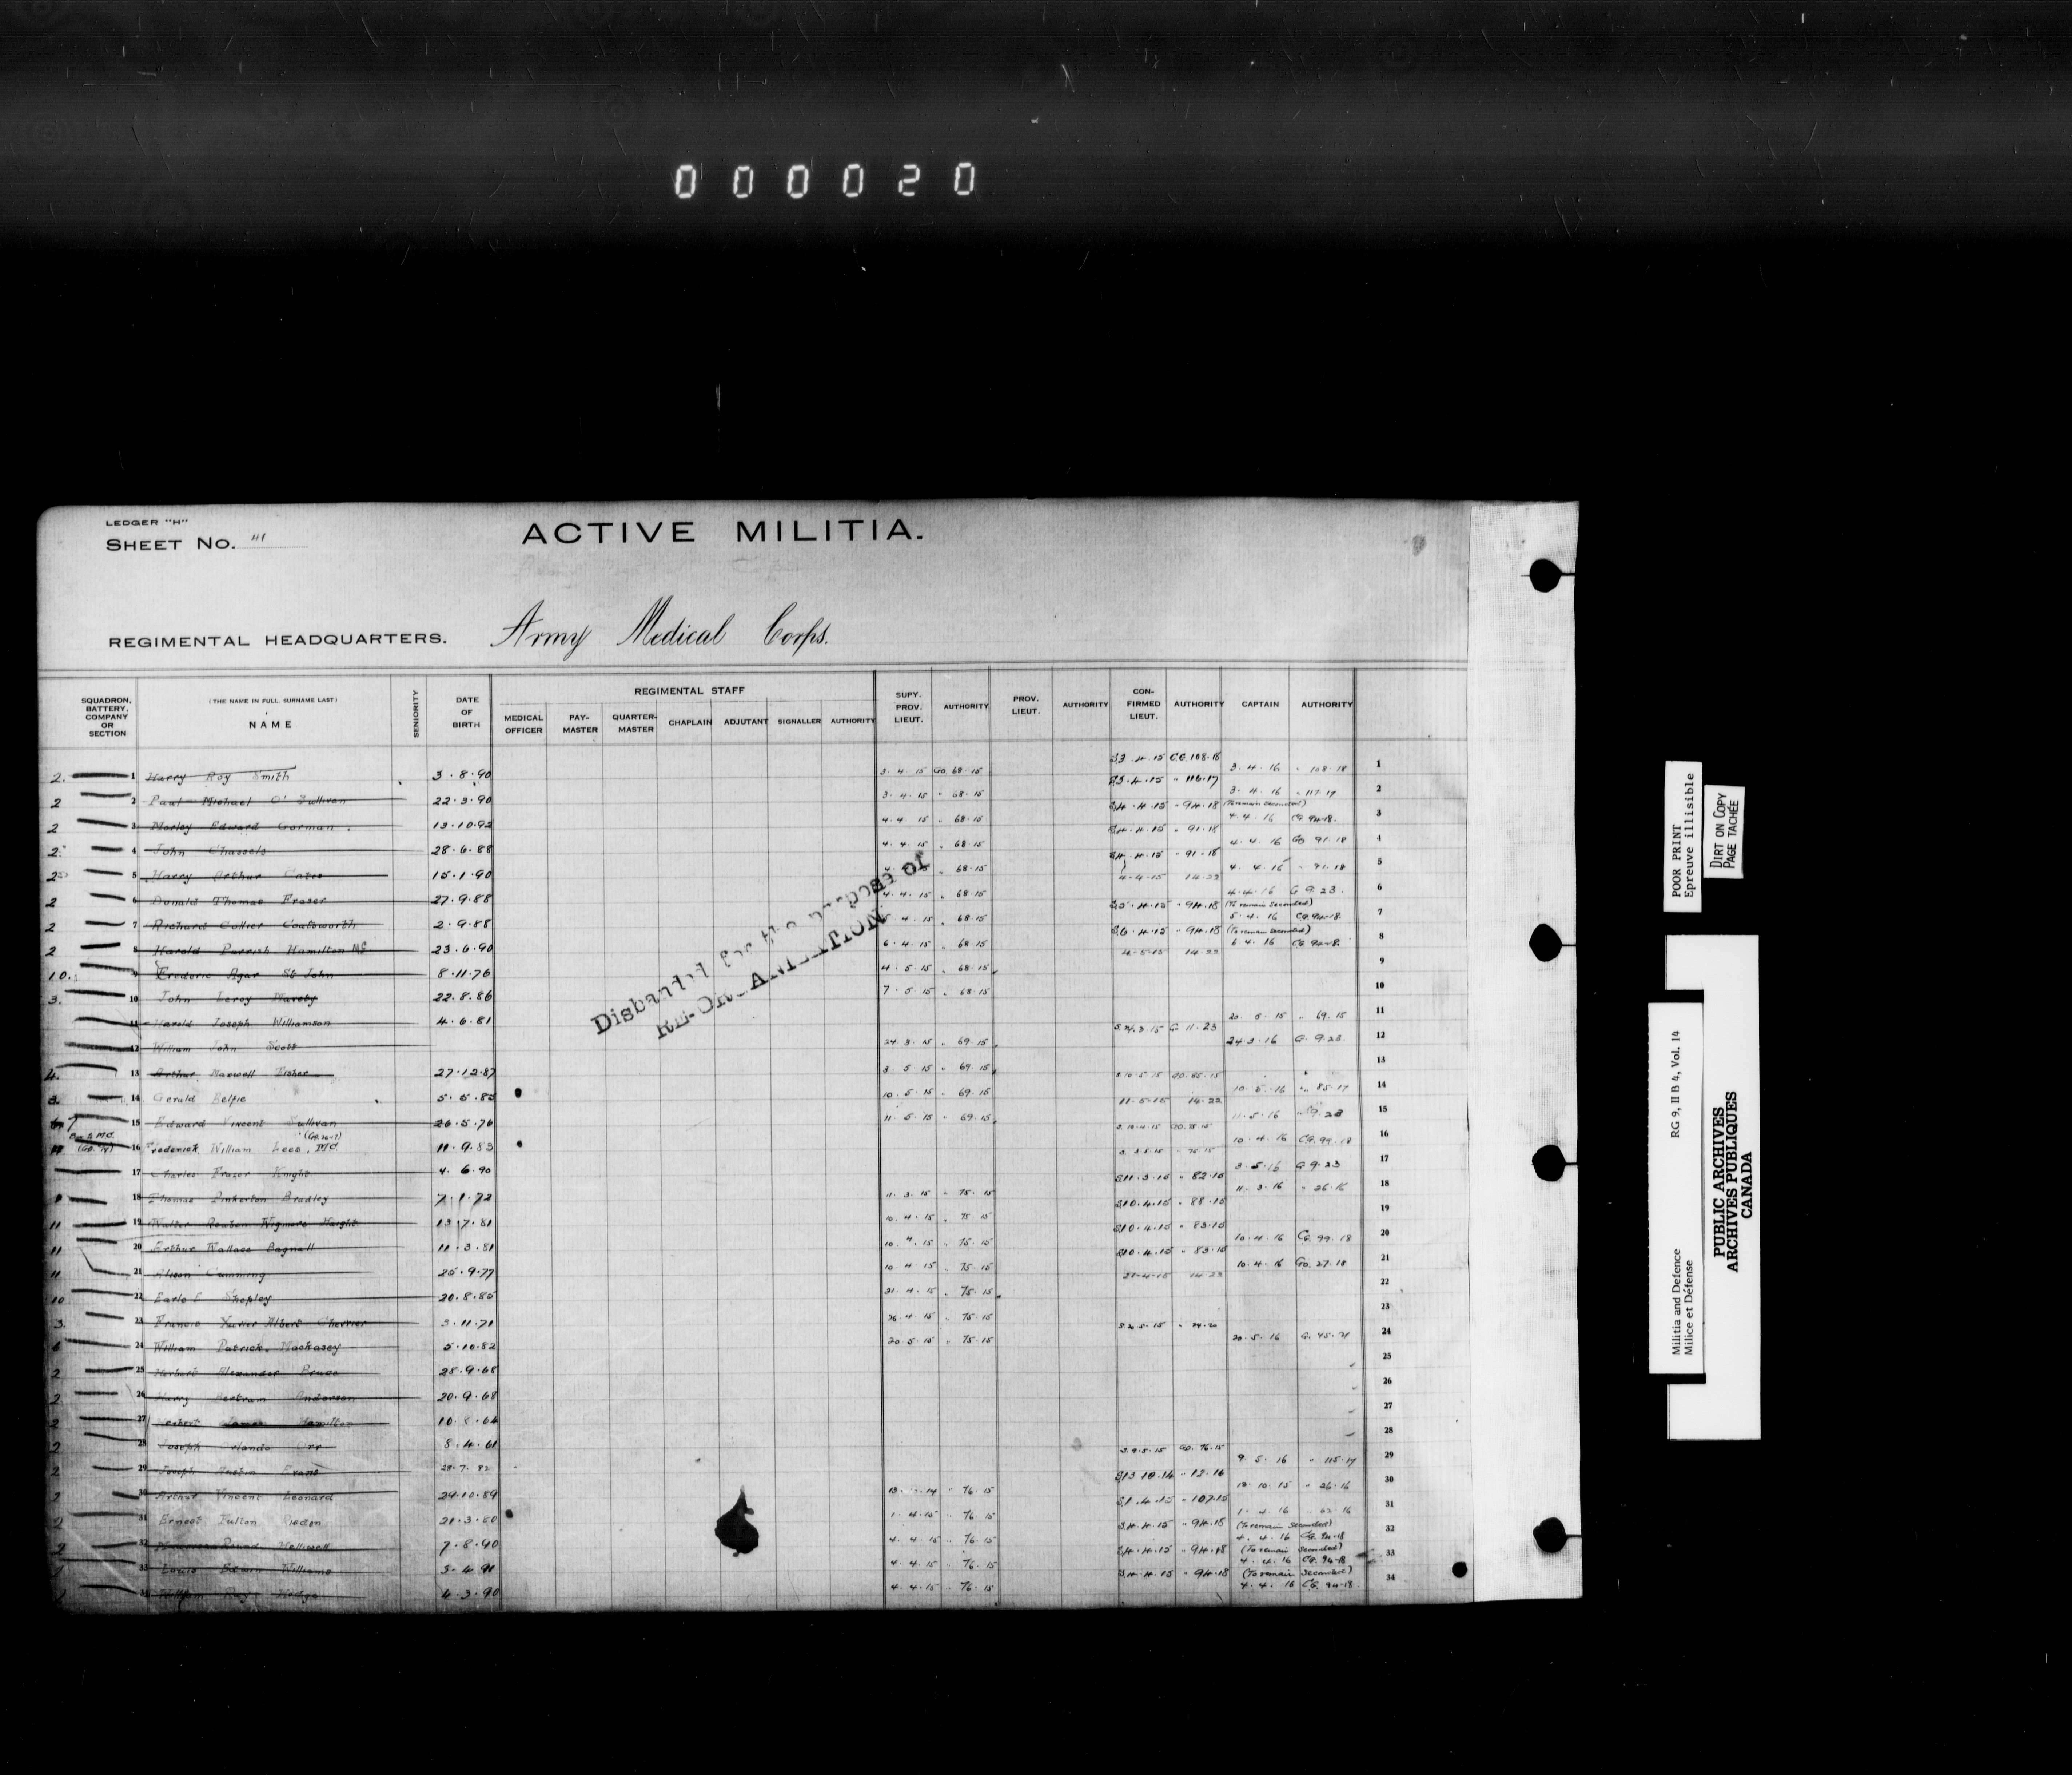 000020
LEDGER "H"
SHEET No. 41
ACTIVE MILITIA.
REGIMENTAL HEADQUARTERS. Army Medical Corps.
SQUADRON, BATTERY, COMPANY OR SECTION
(THE NAME IN FULL. SURNAME LAST)
NAME
SENIORITY
DATE OF BIRTH
REGIMENTAL STAFF
MEDICAL OFFICER
PAY-MASTER
QUARTER-MASTER
CHAPLAIN
ADJUTANT
SIGNALLER
AUTHORITY
SUPY. PROV. LIEUT.
AUTHORITY
PROV. LIEUT.
AUTHORITY
CON-FIRMED LIEUT.
AUTHORITY
CAPTAIN
AUTHORITY
2. 1 Harry Roy Smith 3.8.90 3.4.15 GO.68.15 3.4.16 " 108.18 1
2 2 Paul Michael O'Sullivan 22.3.90 3.4.15 " 68.15 3.4.16 " 117.17 2
2 3 Morley Edward Gorman 13.10.92 4.4.15 " 68.15 (To remain seconded) 4.4.16 CG.94.18. 3
2 4 John Chassels 28.6.88 4.4.15 " 68.15 4.4.16 GO 91.18 4
2 5 Harry Arthur Cates 15.1.90 68.15 4.4.16 " 91.18 5
2 6 Donald Thomas Fraser 27.9.88 4.4.15 " 68.15 4-4-15 14-23 4.4.16 G 9.23. 6
2 7 Richard Collier Coatsworth 2.9.88 4.15 " 68.15 5.4.15 " 94.18 (To remain seconded) 5.4.16 CG.94.18. 7
2 8 Harold Parrish Hamilton 23.6.90 6.4.15 " 68.15 6.4.15 " 94.18 (To remain seconded) 6.4.16 CG.94.18. 8
10. 9 Frederic Agar St John 8.11.76 4.5.15 " 68.15 4-5-15 14-23 9
3. 10 John Leroy 22.8.86 7.5.15 " 68.15 10
11 Harold Joseph Williamson 4.6.81 20.5.15 " 69.15 11
12 William John Scott 24.3.15 " 69.15 G. 11.23 24.3.16 G. 9.23. 12
4. 13 Arthur Maxwell Fisher 27.12.87 3.5.15 " 69.15 13
3. 14 Gerald Belfie 5.5.85 10.5.15 " 69.15 10.5.16 " 85.17 14
15 Edward Vincent Sullivan 26.5.76 11.5.15 " 69.15 11-5-15 14-23 11.5.16 " 9.23 15
16 Frederick William Lees, MC 11.9.83 10.4.16 CG.99.18 16
17 Charles Fraser Knight 4.6.90 3.5.16 G 9.23 17
18 Thomas Pinkerton Bradley 7.1.72 11.3.15 " 75.15 11.3.15 " 82.15 11.3.16 " 26.16 18
11 19 Walter Reuben Wigmore Haight 13.7.81 10.4.15 " 75.15 10.4.15 " 88.15 19
11 20 Arthur Wallace Bagnall 11.3.81 10.4.15 " 75.15 10.4.15 " 83.15 10.4.16 CG.99.18 20
11 21 Cumming 25.9.77 10.4.15 " 75.15 10.4.15 " 83.15 10.4.16 GO.27.18 21
10 22 Earle E Shepley 20.8.85 21.4.15 " 75.15 21-4-15 14-23 22
3. 23 Francis Xavier Albert Cherrier 3.11.71 26.4.15 " 75.15 23
6 24 William Patrick Mackasey 5.10.82 20.5.15 " 75.15 20.5.16 G. 45.21 24
2 25 Herbert Alexander Bruce 28.9.68 25
2 26 Harry Bertram Anderson 20.9.68 26
2 27 James Hamilton 10.8.64 27
2 28 Joseph Orlando Orr 8.4.61 28
2 29 Joseph Austin Evans 28.7.82 9.5.15 GO.76.15 9.5.16 " 115.17 29
2 30 Arthur Vincent Leonard 29.10.89 76.15 13.10.14 " 12.16 13.10.15 " 26.16 30
2 31 Ernest Fulton Risdon 21.3.80 1.4.15 " 76.15 1.4.15 " 107.15 1.4.16 31
2 32 Helliwell 7.8.90 4.4.15 " 76.15 4.4.15 " 94.18 (To remain seconded) 4.4.16 CG.94.18 32
33 Louis Edwin Williams 3.4.91 4.4.15 " 76.15 4.4.15 " 94.18 (To remain seconded) 4.4.16 CG.94-18 33
William Roy Hodge 4.3.90 4.4.15 " 76.15 4.4.15 " 94.18 (To remain seconded) 4.4.16 CG.94-18. 34
Disbanded for the purpose of
RE-ORGANIZATION
POOR PRINT
Epreuve illisible
DIRT ON COPY
PAGE TACHÉE
Militia and Defence
Milice et Défense
RG 9, II B 4, Vol. 14
PUBLIC ARCHIVES
ARCHIVES PUBLIQUES
CANADA